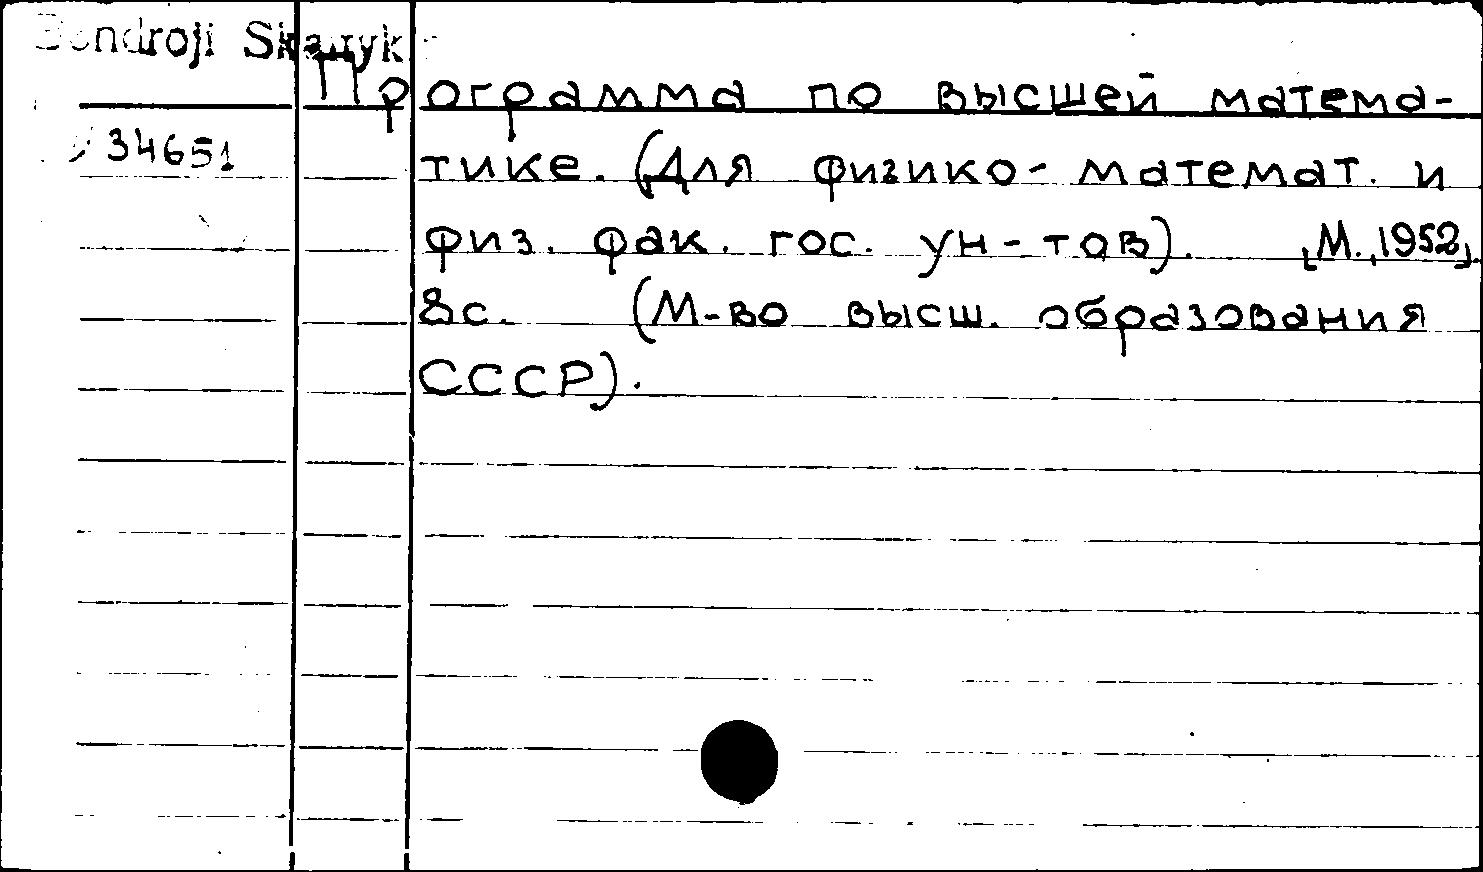 Bendroji Skaityk
Программа по высшей матема-
34651
тике. (Для физико-математ. и
физ. фак. гос. ун-тов). [М.,1952].
8с. (М-во высш. образования
СССР).